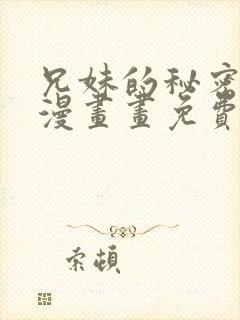 兄妹的秘密
漫畫畫免費
索頓